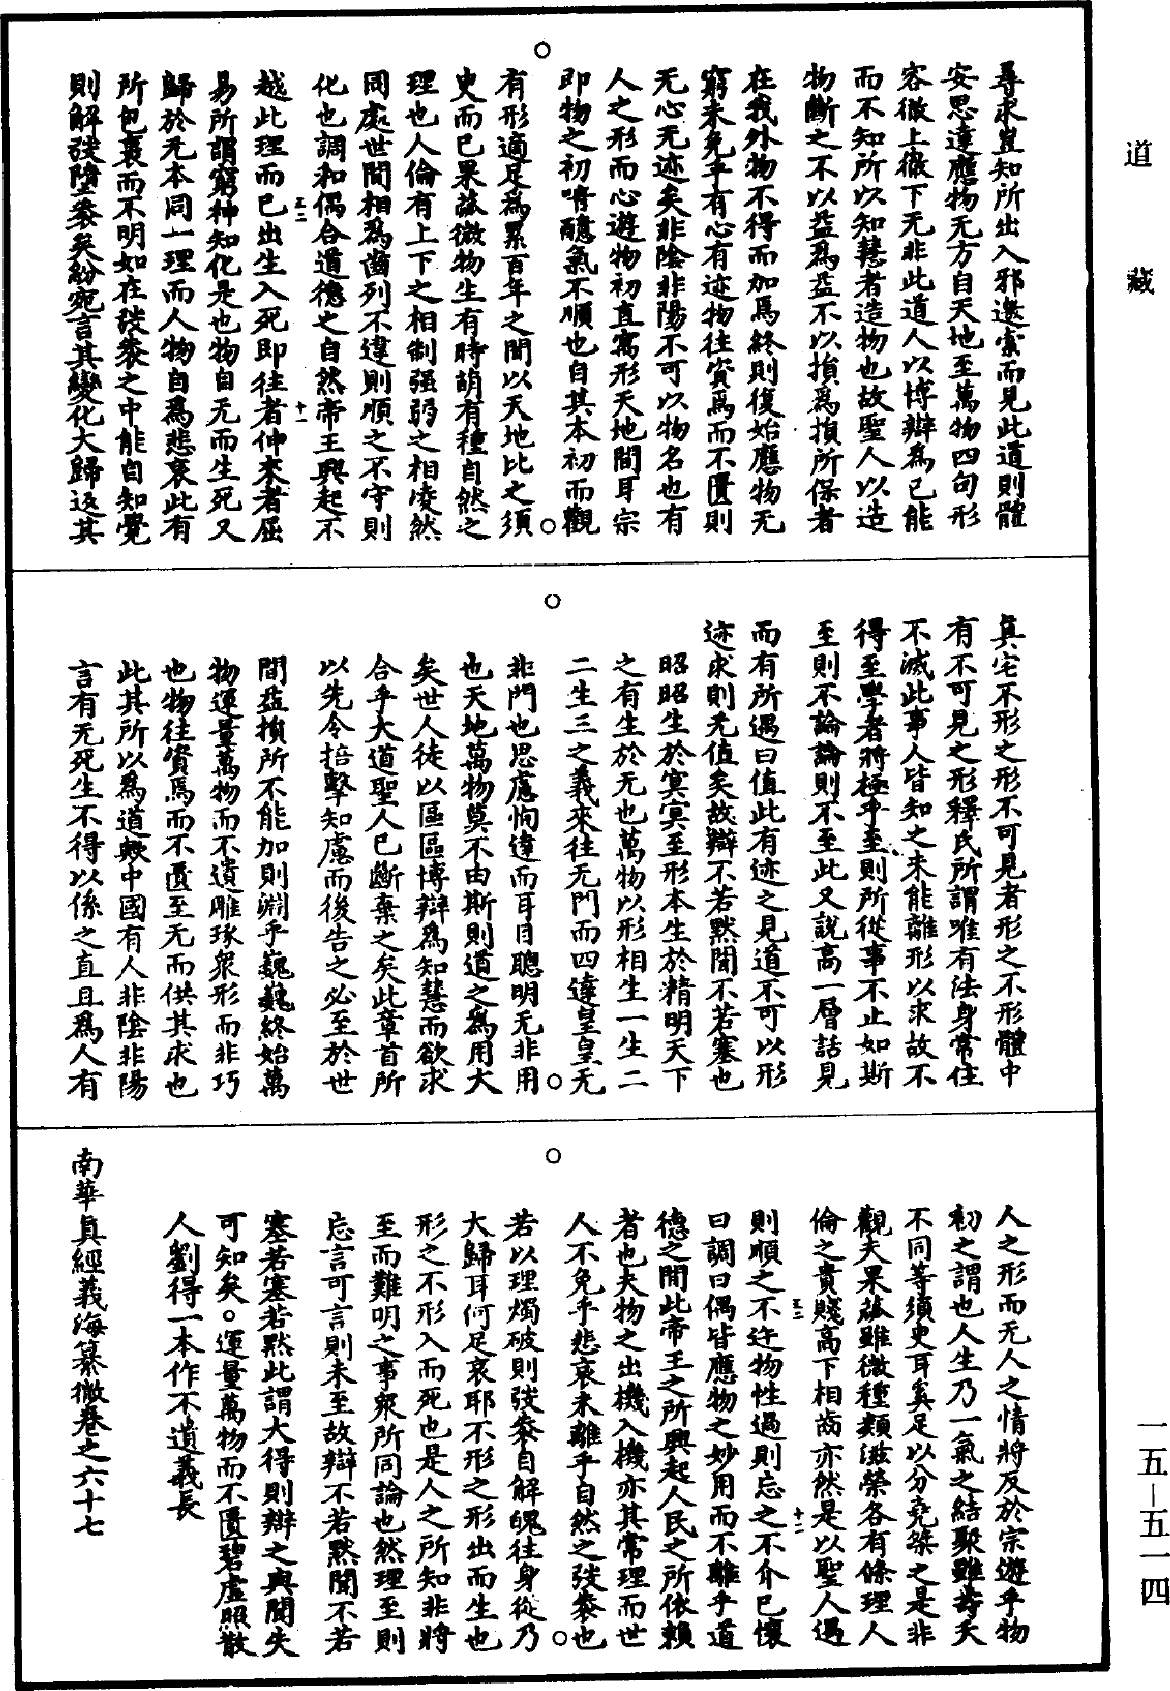 道藏
尋求豈知所出入邪邀索而見此道則體
安思達應物无方自天地至萬物四句形
容徹上徹下无非此道人以博辯為已能
而不知所以知慧者造物也故聖人以造
物斷之不以益為益不以損為損所保者
在我外物不得而加焉終則復始應物无
窮未免乎有心有迹物往資焉而不匱則
无心无迹矣非陰非陽不可以物名也有
人之形而心遊物初直寓形天地間耳宗
即物之初喑醷氣不順也自其本初而觀
有形適足為累百年之間以天地比之須
史而已果蓏微物生有時萌有種自然之
理也人倫有上下之相制强弱之相凌然
同處世間相為齒列不違則順之不守則
化也調和偶合道德之自然帝王興起不
越此理而已出生入死即往者伸來者屈
易所謂窮神知化是也物自无而生死又
歸於无本同一理而人物自為悲哀此有
所包裹而不明如在弢袠之中能自知覺
則解弢墮袠矣紛宛言其變化大歸返其
真宅不形之形不可見者形之不形體中
有不可見之形釋氏所謂唯有法身常住
不滅此事人皆知之未能離形以求故不
得至學者將極乎至則所從事不止如斯
至則不論論則不至此又說高一層話見
而有所遇曰值此有迹之見道不可以形
迹求則无值矣故辯不若默聞不若塞也
昭昭生於冥冥至形本生於精明天下
之有生於无也萬物以形相生一生二
二生三之義來往无門而四達皇皇无
非門也思慮恂達而耳目聰明无非用
也天地萬物莫不由斯則道之為用大
矣世人徒以區區博辯為知慧而欲求
合乎大道聖人已斷棄之矣此章首所
以先令掊擊知慮而後告之必至於世
間益損所不能加則淵乎巍巍終始萬
物運量萬物而不遺雕琢衆形而非巧
也物往資焉而不匱至无而供其求也
此其所以為道歟中國有人非陰非陽
言有无死生不得以係之直且為人有
人之形而无人之情將反於宗遊乎物
初之謂也人生乃一氣之結聚雖壽夭
不同等須史耳奚足以分堯桀之是非
觀夫果蓏雖微種類滋榮各有條理人
倫之貴賤高下相齒亦然是以聖人遇
則順之不迕物性過則忘之不介已懷
曰調曰偶皆應物之妙用而不離乎道
德之間此帝王之所興起人民之所依賴
者也夫物之出機入機亦其常理而世
人不免乎悲哀未離乎自然之弢袠也
若以理燭破則弢袠自解魄往身從乃
大歸耳何足哀耶不形之形出而生也
形之不形入而死也是人之所知非將
至而難明之事衆所同論也然理至則
忘言可言則未至故辯不若默聞不若
塞若塞若默此謂大得則辯之與聞失
可知矣○運量萬物而不匱碧虛照散
人劉得一本作不遺義長
南華真經義海纂微卷之六十七
一五—五一四